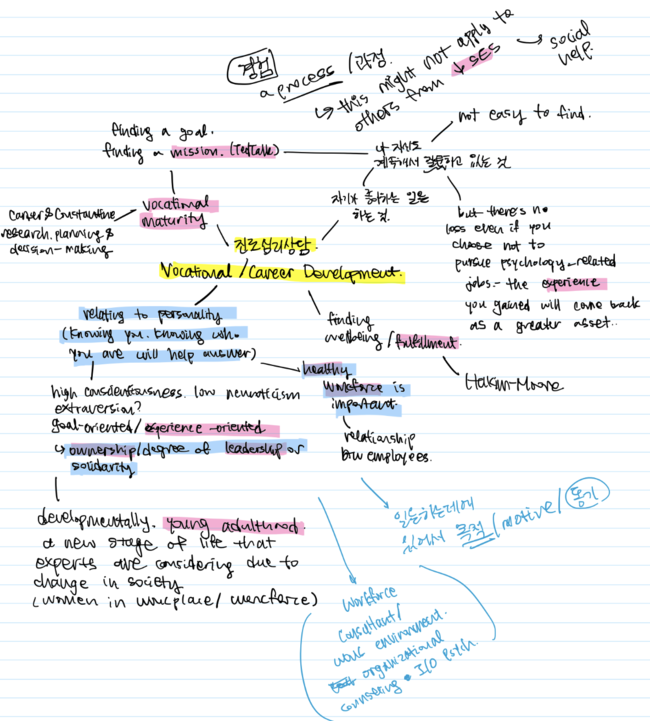 경험
a process / 과정.
↳ this might not apply to
others from ↓ SES
→ social
help.
not easy to find.
finding a goal.
finding a mission. (TedTalk)
나 자신도
계속해서 갈등하고 있는 것
vocational
maturity
career & constantine
research. planning &
decision-making
자기가 좋아하는 일을
하는 것.
but there's no
loss even if you
choose not to
pursue psychology-related
jobs.- the experience
you gained will come back
as a greater asset..
진로심리상담.
Vocational / Career Development.
relating to personality
(knowing you. knowing who.
you are will help answer)
finding
wellbeing / fulfillment.
Hakim-Moore
high conscientiousness. low neuroticism
extraversion?
goal-oriented / experience-oriented
↳ ownership/degree of leadership or
solidarity
healthy
workforce is
important.
relationship
btw employees.
developmentally. young adulthood.
a new stage of life that
experts are considering due to
change in society
(women in workplace / workforce)
일을하는데에
있어서 목적 / motive / 동기
workforce
consultant /
work environment.
organizational
counseling • I/O Psych.